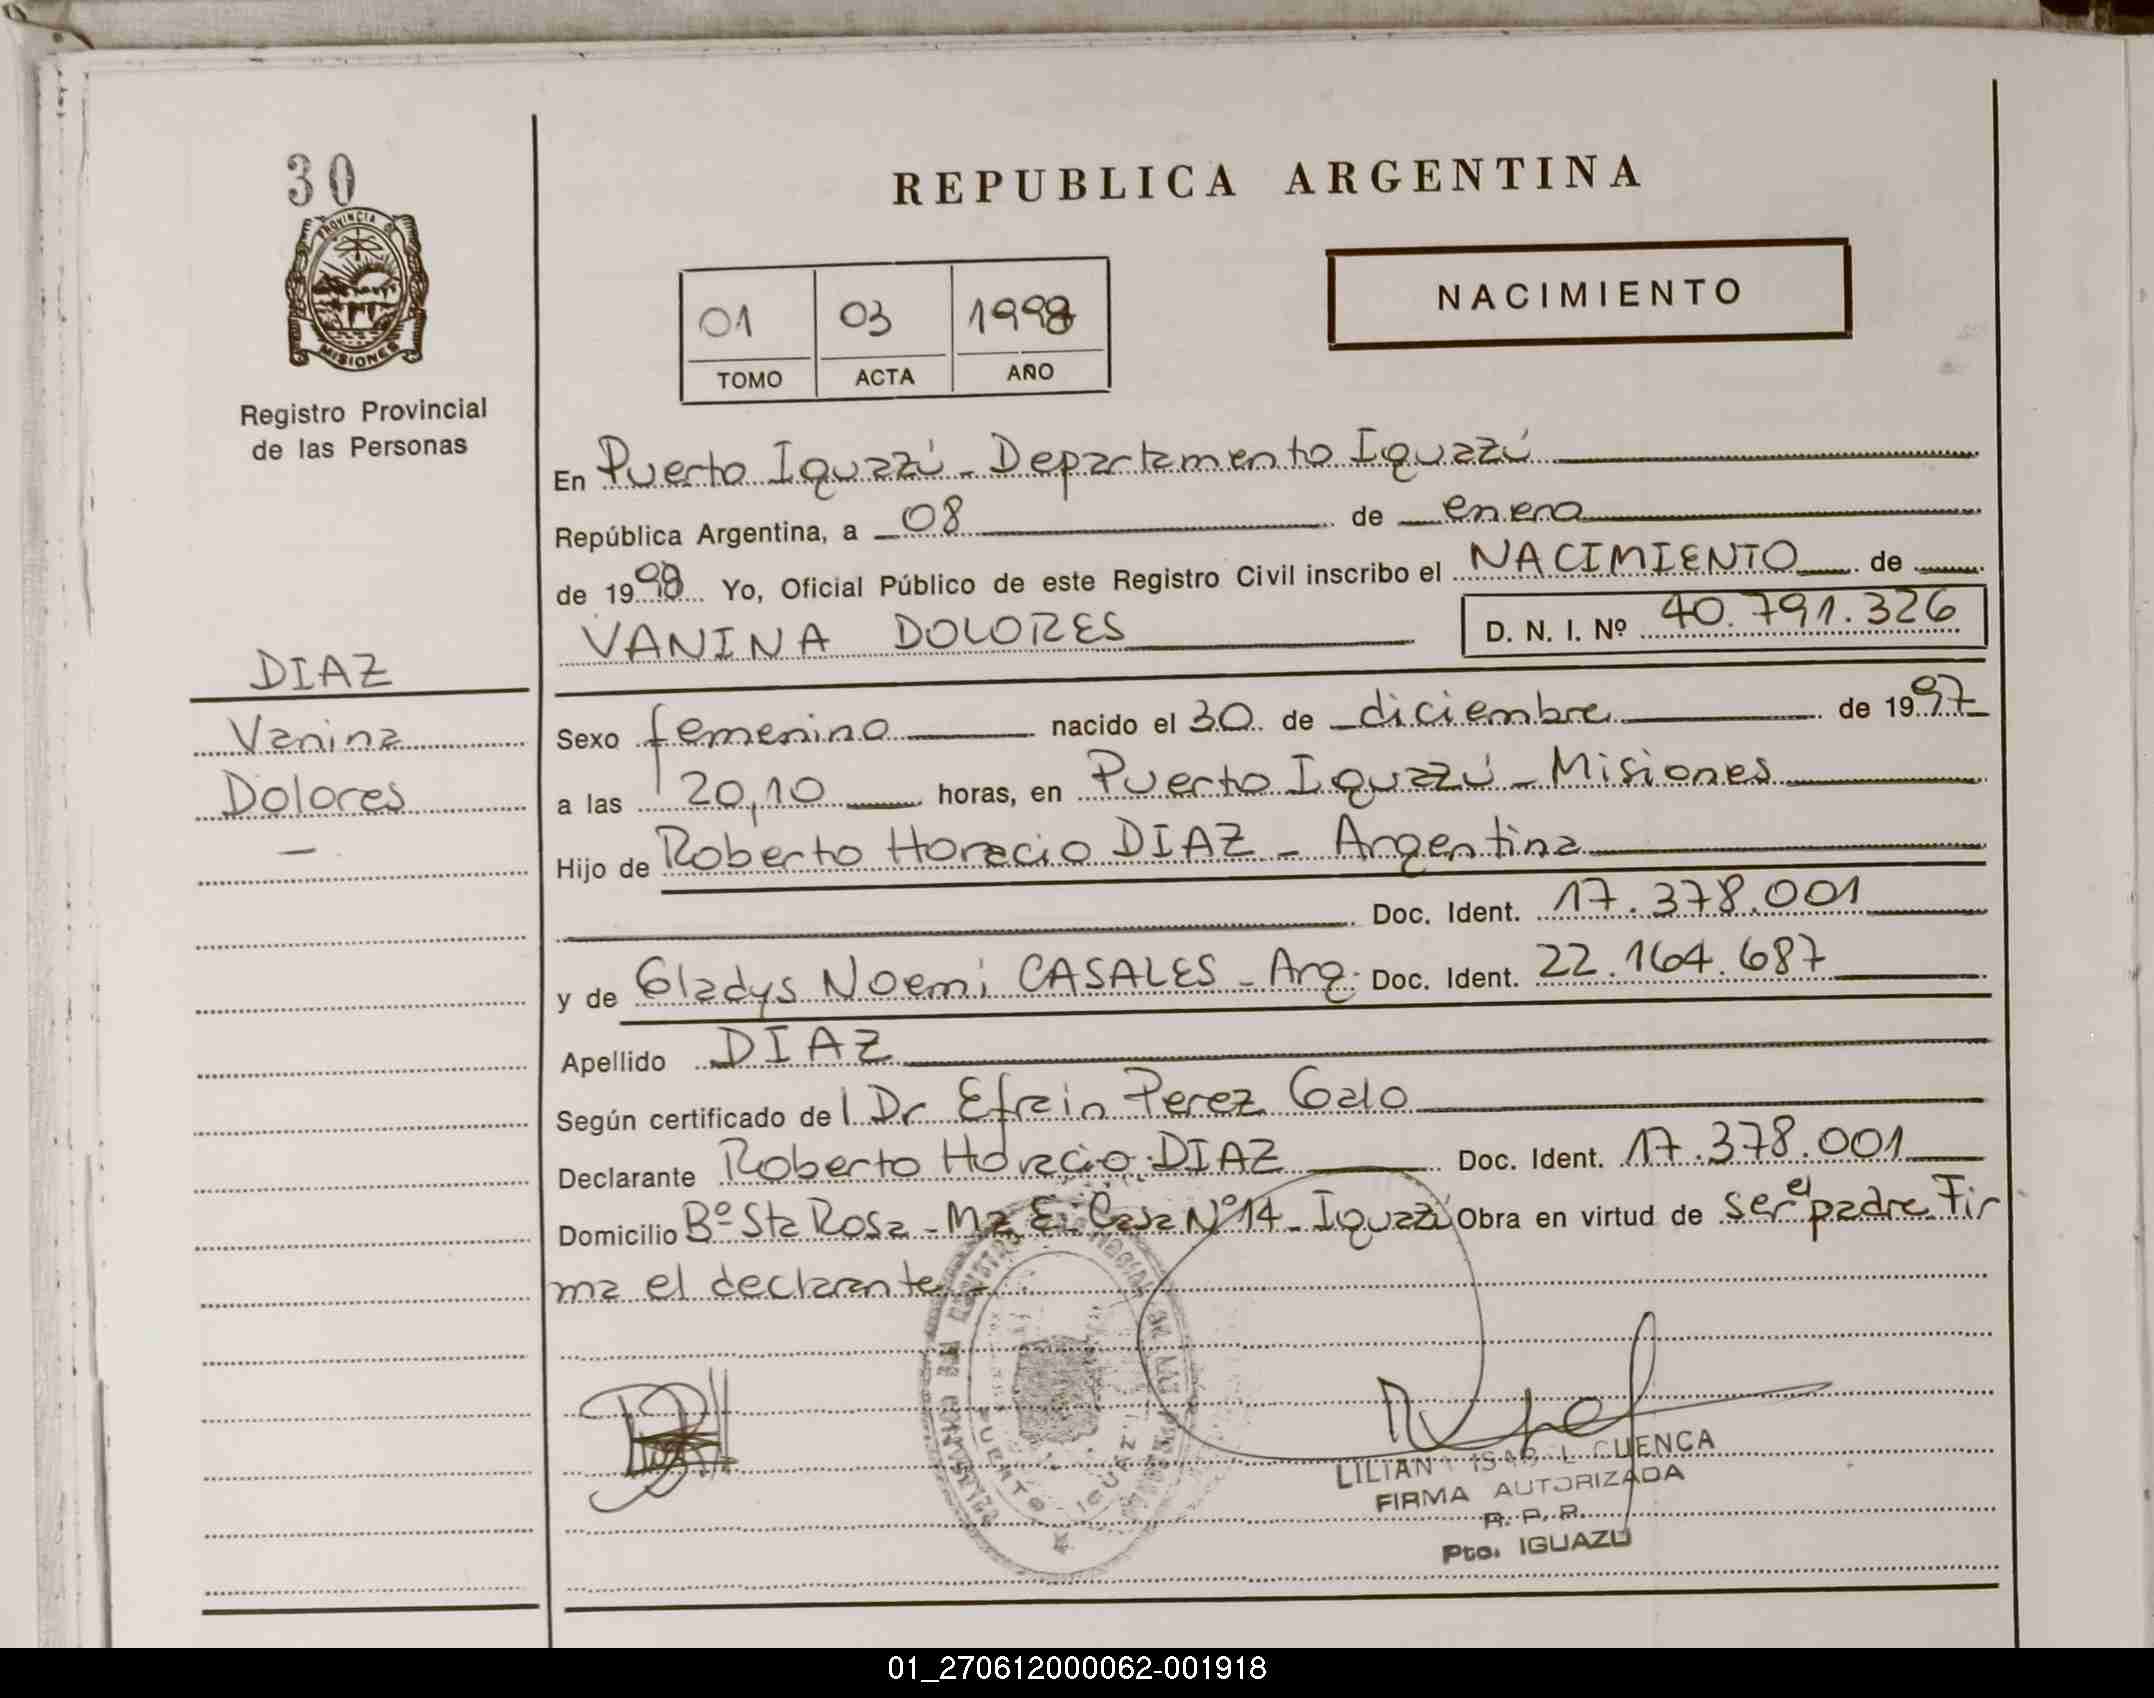 30
PROVINCIA
MISIONES
Registro Provincial
de las Personas
REPUBLICA ARGENTINA
01 03 1998
TOMO ACTA AÑO
NACIMIENTO
En Puerto Iguazú - Departamento Iguazú
República Argentina, a 08 de enero
de 1998 Yo, Oficial Público de este Registro Civil inscribo el NACIMIENTO de
VANINA DOLORES D. N. I. Nº 40.791.326
DIAZ
Vanina
Dolores
Sexo femenino nacido el 30 de diciembre de 1997
a las 20,10 horas, en Puerto Iguazú - Misiones
Hijo de Roberto Horacio DIAZ - Argentina
Doc. Ident. 17.378.001
y de Gladys Noemi CASALES - Arg. Doc. Ident. 22.164.687
Apellido DIAZ
Según certificado del Dr Efrain Perez Galo
Declarante Roberto Horacio DIAZ Doc. Ident. 17.378.001
Domicilio Bº Sta Rosa - Mz E - Casa Nº 14 - Iguazú Obra en virtud de ser el padre Fir
ma el declarante -
PUERTO IGUAZU
CUENCA
FIRMA AUTORIZADA
R. P. P.
Pto. IGUAZU
01_270612000062-001918